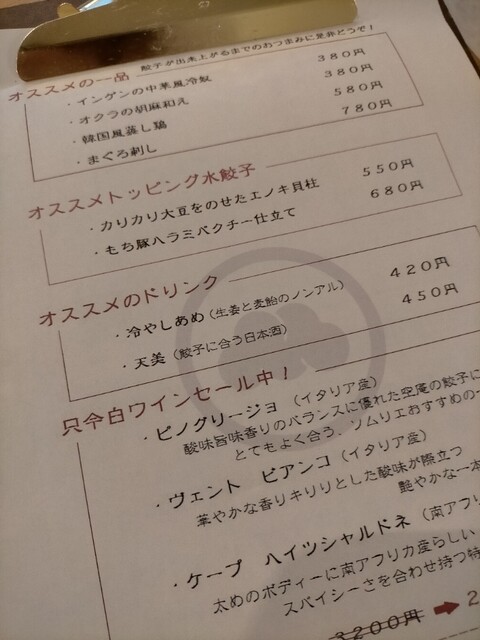 オススメの一品 餃子が出来上がるまでのおつまみに是非どうぞ！
・インゲンの中華風冷製 380円
・オクラの胡麻和え 380円
・韓国風蒸し鶏 580円
・まぐろ刺し 780円
オススメトッピング水餃子
・カリカリ大豆をのせたエノキ貝柱 550円
・もち豚ハラミベクチー仕立て 680円
オススメのドリンク
・冷やしあめ（生姜と麦飴のノンアル） 420円
・天美（餃子に合う日本酒） 450円
只今白ワインセール中！
・ピノグリージョ （イタリア産）
酸味旨味香りのバランスに優れた空庵の餃子に
とてもよく合う、ソムリエおすすめの一
・ヴェント ビアンコ（イタリア産）
華やかな香りキリリとした酸味が際立つ
艶やかな一本
・ケープ ハイツシャルドネ （南アフリ
太めのボディーに南アフリカ産らしい
スパイシーさを合わせ持つ特
3200円 ➡ 2